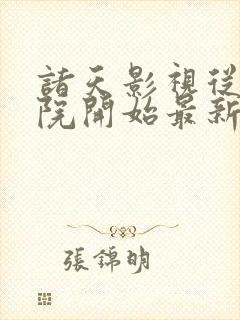 諸天影視從
院開始最新
張錦明